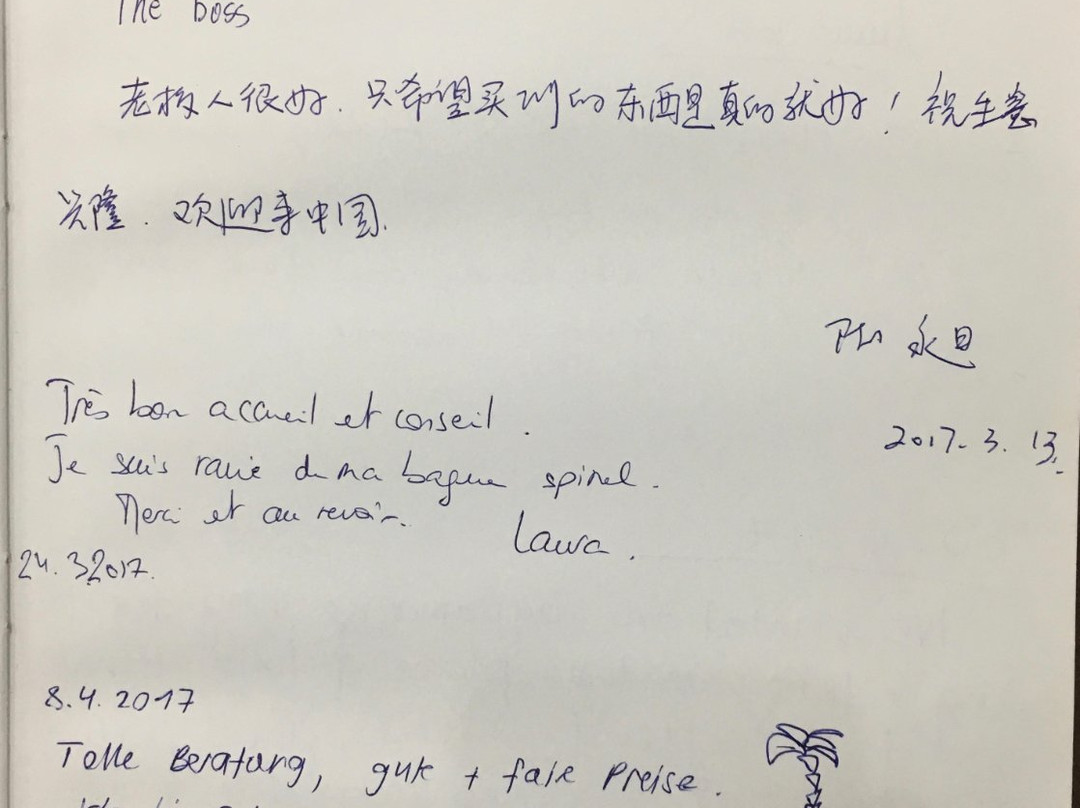 The boss
老板人很好.只希望买到的东西是真的就好！祝生意
兴隆.欢迎来中国.
永旦
2017.3.13.
Très bon accueil et conseil.
Je suis ravie de ma bague spinel.
Merci et au revoir.
Laura.
24.3.2017.
8.4.2017
Tolle Beratung, gute + faire Preise.